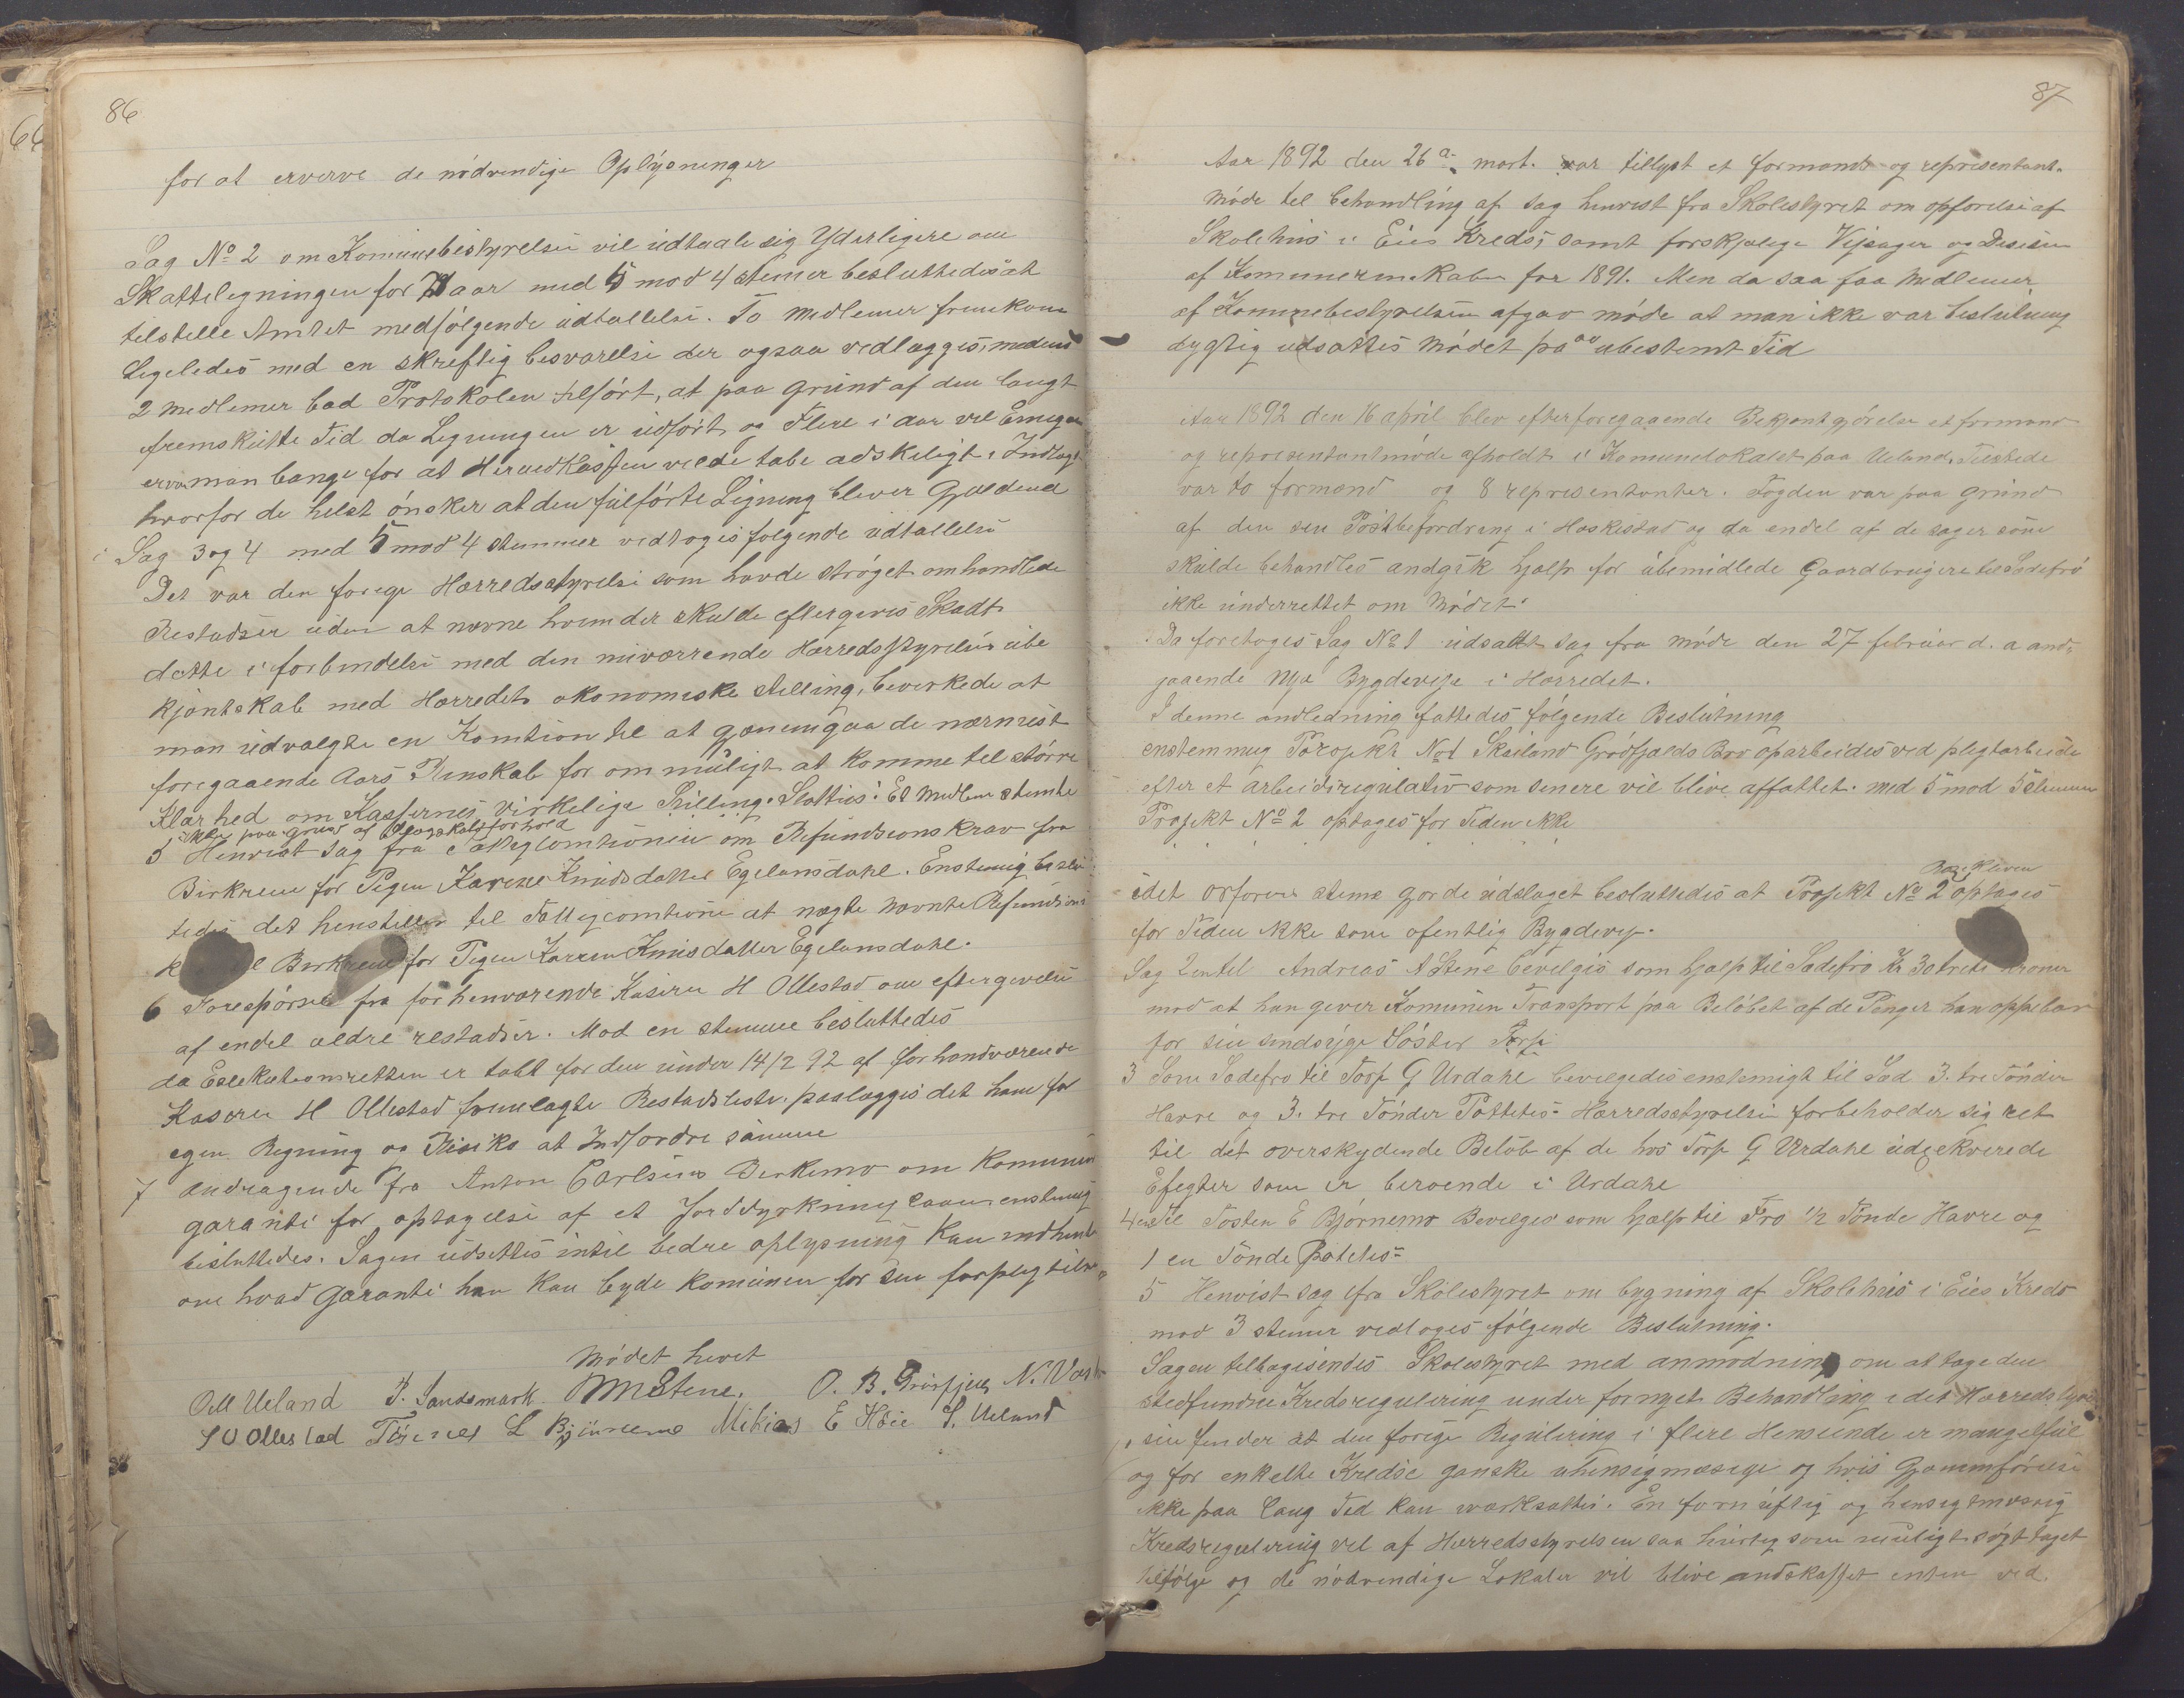 86
for at erverve de nödvendige Oplysninger
Sag No 2 om Komunebestyrelsen vil udtaale sig Yderligere om
Skattelegningen for aar med 5 mod 4 stemer besluttedes at
tilstelle Amtet medfölgende udtallelse. To medlemer fremkom
Ligeledes med en skreftig besvarelse der ogsaa vedlægges, medens
2 medlemer bad Protokolen tilfört, at paa grund af den langt
fremskutte Tid da Ligningen er udfört og Flere i aar vil
man bange for at Herredkassen vilde tabe adskeligt i
hvorfor de helst önsker at den fulförte Ligning bliver Gjældend
i Sag 3 og 4 med 5 mod 4 stemmer vedtoges folgende udtallelse
Det var den forige Herredsstyrelse som havde ströget omhandlede
Restadser uden at nævne hvem der skulde eftergives Skadt
dette i forbindelse med den nuværrende Herredsstyrelses ube
kjöntskab med Herredets økonomiske stelling, bevirkede at
man udvalgte en Komtion til at gjænemgaa de nærmest
foregaaende Aars Rinskab for om muligt at komme til större
Klarhed om Kassernes virkelige Stilling. Sluttes. Et medlem stemte
ikke paa grund af Slagskabsforhold
5 Henvist sag fra Fattigcomtionen om Refundsionskrav fra
Birkrem for Pigen Karene Knudsdatter Egelandsdahl. Enstemig beslu
tedes det henstilles til Fattigcomtione at nægte nævnte Refundsions
k Birkrem for Pigen Karren Knusdatter Egelansdahl.
6 Forespörsel fra forhenværende Kaserer H Ollestad om eftergivelse
af endel ældre restadser. Mod en stemme besluttedes
da Esekutionsretten er tabt for den under 14/2 92 af forhendværende
Kaserer H Ollestad fremlagte Restadsliste. paalægges det ham for
egen Regning og Risiko at Indfordre samme
7 Andragende fra Anton Carlsen Birkemo om Komunens
garanti for optagelse af et Jorddyrkning laan enstemig
besluttedes. Sagen udsettes intil bedre oplysning kan indhente
om hvad Garanti han kan byde komunen for sin
Mödet hevet
Odd Ueland P. Sandsmark MStene. O. B. Grösfjeld N.
S O Ollestad Tönnes L Bjørnemo Mikias E Höie S. Ueland
87
Aar 1892 den 26 mart. var tillyst et formands og representant-
möde til behandling af sag henvist fra Skolestyret om opførelse af
Skolehus i Eies Kreds, samt forskjelige Vejsager og Desision
af Komunerinskaber for 1891. Men da saa faa medlemer
af Komunebestyrelsen afgav möde at man ikke var beslutning
dygtig udsattes Mödet paa ubestemt Tid
Aar 1892 den 16 april blev efter foregaaende Bekjentgjörelse et formand
og representantmöde afholdt i Komunelokalet paa Ueland. Tilstede
var to formænd og 8 representanter. Fogden var paa grund
af den sen Postbefordring i Heskestad og da endel af de sager som
skulde behandles andgik hjælp for ubemidlede Gaardbrugere til Sædefrö
ikke underrettet om mödet.
Da foretoges Sag No 1 udsatt sag fra möde den 27 februar d. a and-
gaaende Nye Bygdeveje i Herredet.
I denne andledning fattedes fölgende Beslutning
enstemmig Porojekt No 1 Skailand Grösfjælds Bro oparbeides ved pligtarbeide
efter et arbeidsregulativ som senere vil blive affattet. med 5 mod 5 stemmer
Projekt No 2 optages for Tiden ikke
idet orforeren steme gjorde udslaget besluttedes at Projekt No 2 optages
for Tiden ikke som ofentlig Bygdevej.
Sag 2 entil Andreas A Stene bevilges som hjælp til Sædefrö Kr 30 treti kroner
mod at han giver Komunen Transport paa Belöbet af de Penger han oppebær
for sin sindsyge Söster
3 Som Sædefro til Torp G Urdahl bevilgedes enstemigt til Sæd 3. tre Tönder
Havre og 3. tre Tönder Pottetes- Herredsstyrelse forbeholder sig ret
til det overskydende Belöb af de hos Torp G Urdahl udpekverede
Efegter som er beroende i Urdahl
4 endtil Tosten E Bjørnemo Bevilges som hjælp til Frö 1/2 Tönde Havre og
1 en Tönde Potetes-
5 Henvist sag fra Skolestyret om bygning af Skolehus i Eies Kreds
mod 3 stemer vedtoges fölgende Beslutning.
Sagen tilbagesendes Skolestyret med anmodning om at tage den
stedfundne Kredsregulering under fornyet Behandling idet Herredsstyrel
sen finder at den forige Regulering i flere Henseende er mangelful
og for enkelte Kredse ganske uhensigmæssige og hvis Gjænnemförelse
ikke paa lang Tid kan værksættes. En fornuftig og hensigtmæsig
Kredsregulering vil af Herredsstyrelsen saa hurtig som muligt sögt taget
tilfölge og de nödvendige Lokaler vil blive andskaffet enten ved